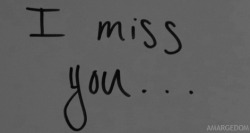 I miss
you...
AMARGEDOM